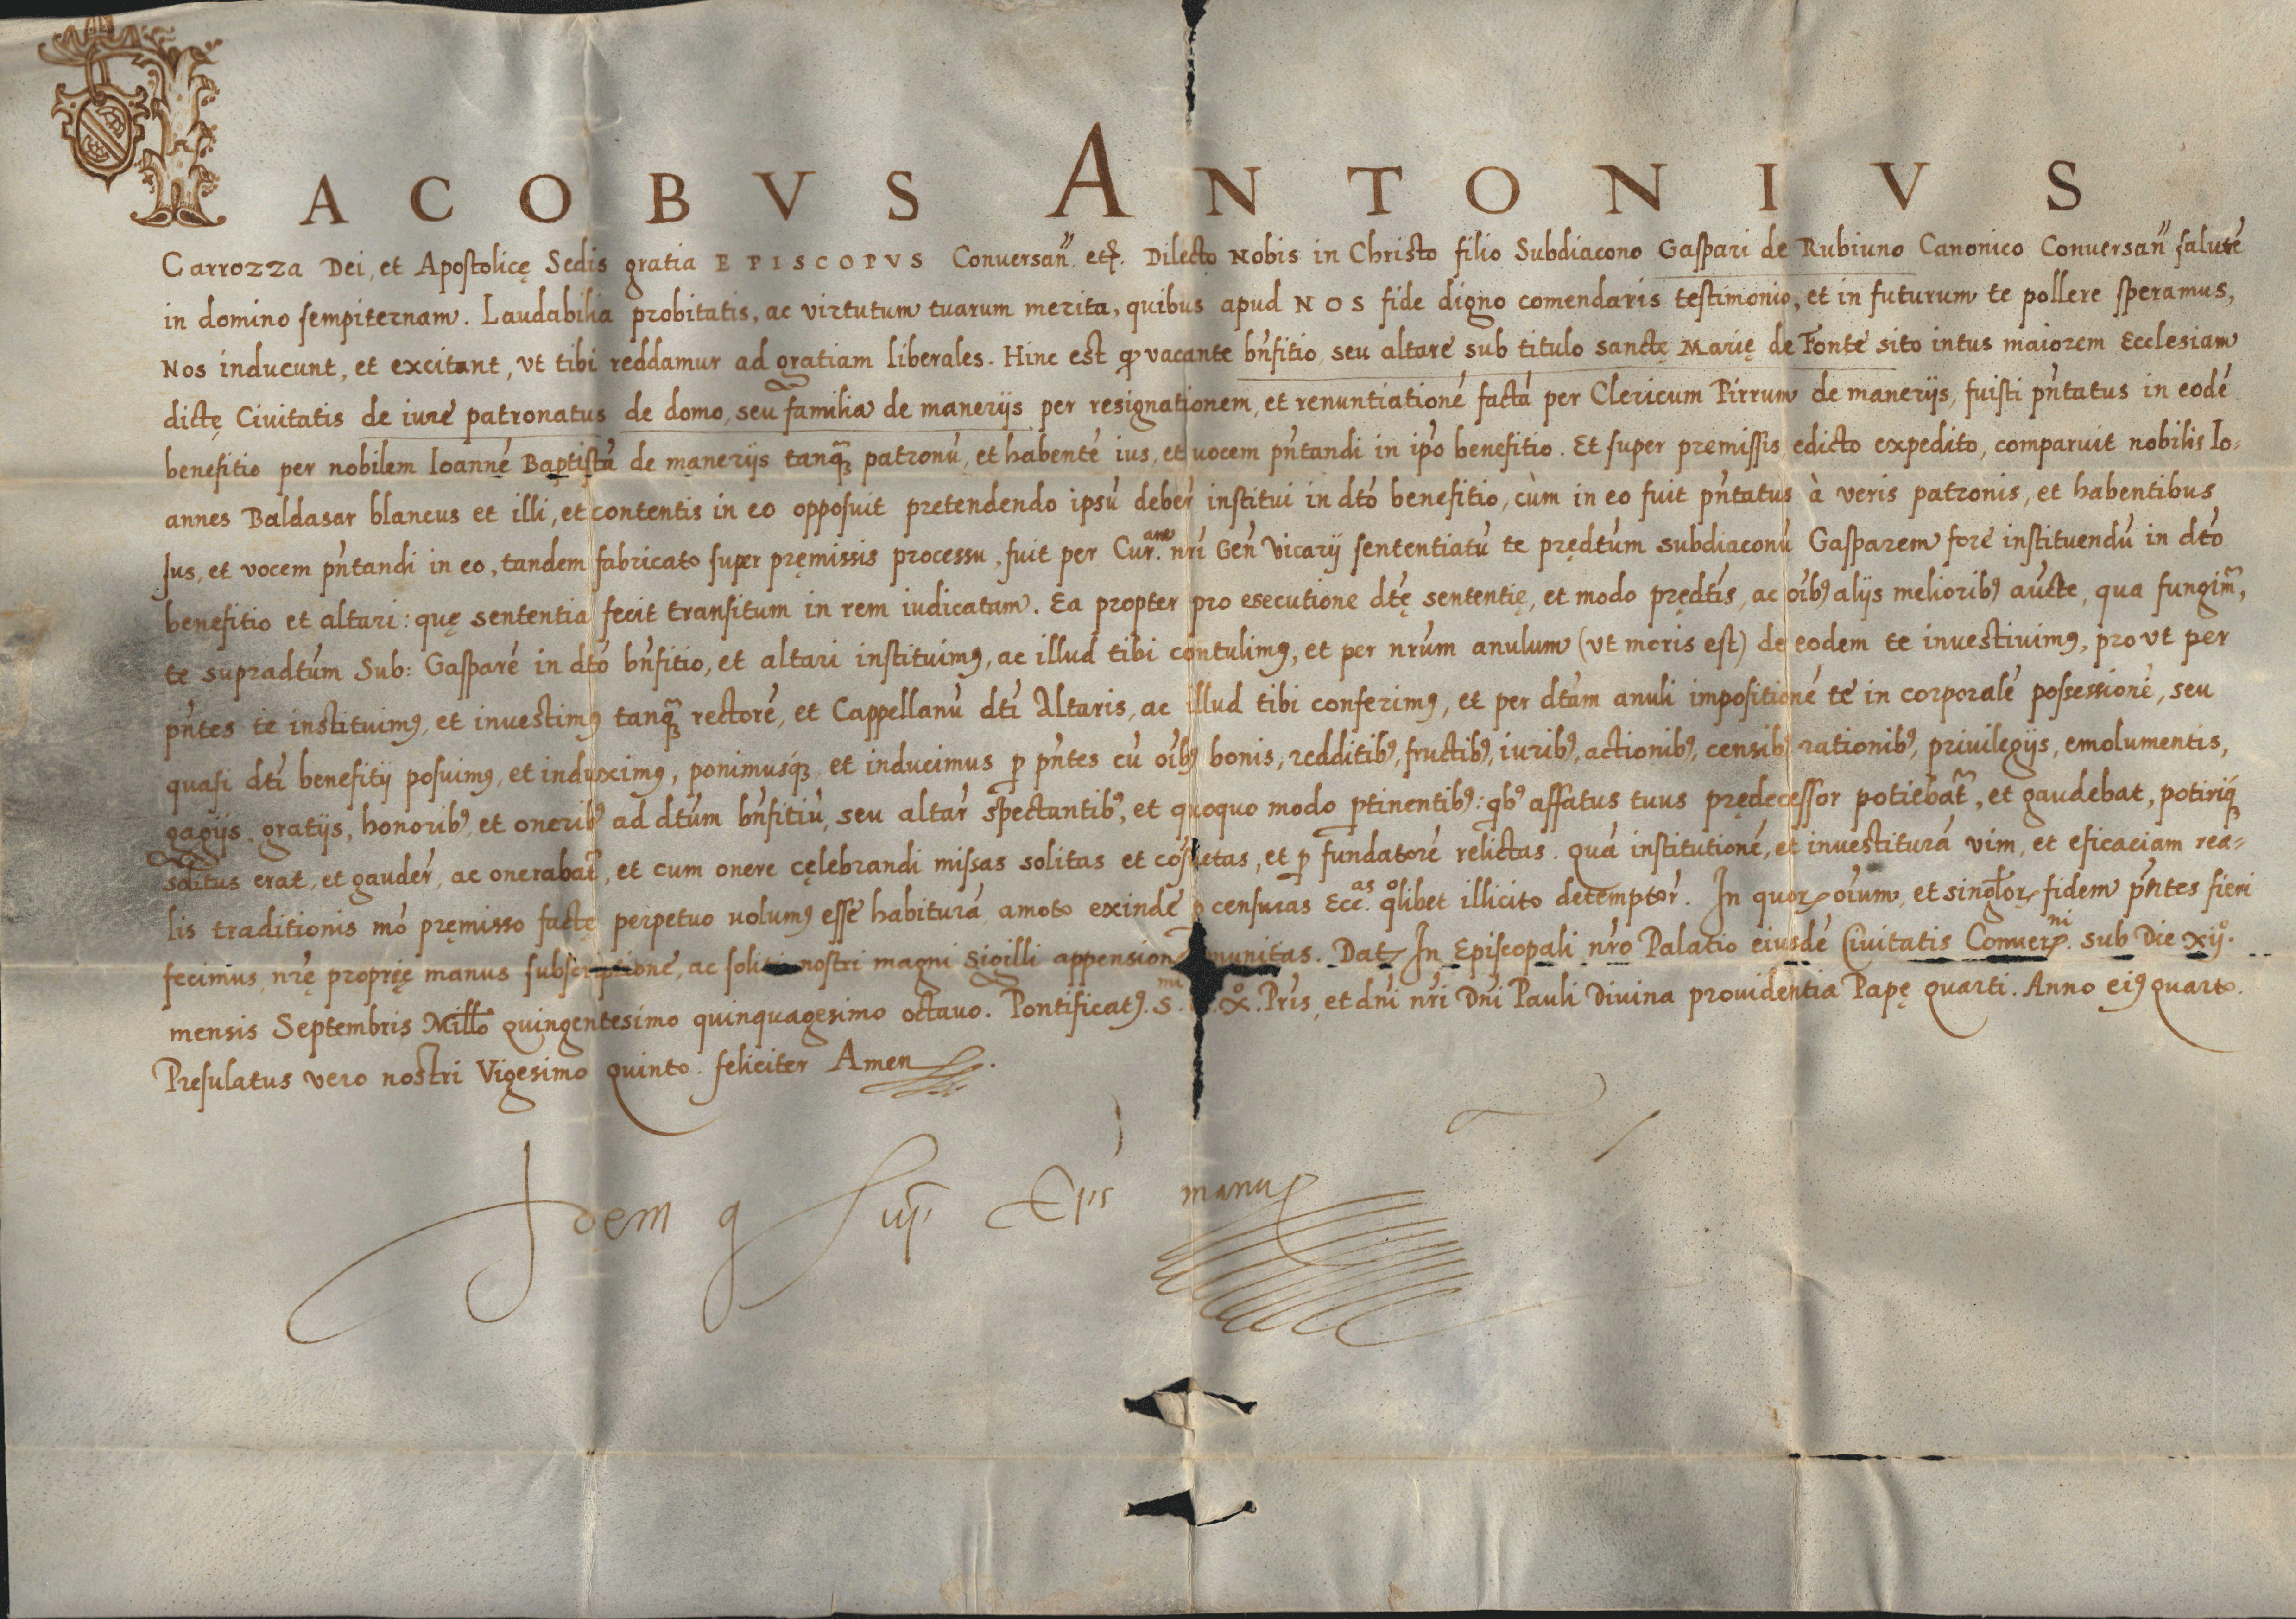 IACOBVS ANTONIVS
Carrozza Dei, et Apostolicę Sedis gratia EPISCOPVS Conuersañ. etc. Dilecto Nobis in Christo filio Subdiacono Gaspari de Rubiuno Canonico Conuersañ salutē
in domino sempiternam. Laudabilia probitatis, ac virtutum tuarum merita, quibus apud NOS fide digno comendaris testimonio, et in futurum te pollere speramus,
Nos inducunt, et excitant, vt tibi reddamur ad gratiam liberales. Hinc est ꝙ vacante bñfitio, seu altare sub titulo sanctę Marię de Fonte sito intus maiorem Ecclesiam
dictę Ciuitatis de iure patronatus de domo, seu familia de manerijs per resignationem, et renuntiationē factā per Clericum Pirrum de manerijs, fuisti pñtatus in eodē
benefitio per nobilem Ioannē Baptistā de manerijs tanqȝ patronū, et habentē ius, et uocem pñtandi in ipo benefitio. Et super premissis edicto expedito, comparuit nobilis Io-
annes Baldasar blancus et illi, et contentis in eo opposuit pretendendo ipsū deber̄ institui in dto benefitio, cùm in eo fuit pñtatus à veris patronis, et habentibus
Ius, et vocem pñtandi in eo, tandem fabricato super pręmissis processu, fuit per Cur.am nri Geñ Vicarij sententiatū te prędtum subdiaconū Gasparem fore instituendū in dto
benefitio et altari: quę sententia fecit transitum in rem iudicatam. Ea propter pro esecutione dtę sententię, et modo prędtis, ac oibꝰ alijs melioribꝰ aucte, qua fungimr̄,
te supradtum Sub: Gasparē in dto bñfitio, et altari instituimꝰ, ac illud tibi contulimꝰ, et per nrum anulum (vt moris est) de eodem te inuestiuimꝰ, pro vt per
pñtes te instituimꝰ, et inuestimꝰ tanqȝ rectorē, et Cappellanū dti Altaris, ac illud tibi conferimꝰ, et per dtam anuli impositionē te in corporalē possessionē, seu
quasi dti benefitij posuimꝰ, et induximꝰ, ponimusqȝ, et inducimus ꝑ pñtes cū oibꝰ bonis, redditibꝰ, fructibꝰ, iuribꝰ, actionibꝰ, censibꝰ rationibꝰ, priuilegijs, emolumentis,
gagijs, gratijs, honoribꝰ, et oneribꝰ ad dtum bñfitiū, seu altar̄ spectantibꝰ, et quoquo modo ꝑtinentibꝰ: qbꝰ affatus tuus prędecessor potiebatr̄, et gaudebat, potiriqȝ
solitus erat, et gauder̄, ac onerabatr̄, et cum onere cęlebrandi missas solitas et cōsuetas, et ꝑ fundatorē relictas. Quā institutionē, et inuestiturā vim, et eficaciam rea-
lis traditionis mō pręmisso factę perpetuo uolumꝰ esse habiturā amoto exinde ꝑ censuras Ecc.as qolibet illicito detemptor̄. In quorꝝ oium, et singlorꝝ fidem pñtes fieri
fecimus, nrę proprię manus subscriptionē, ac soliti nostri magni Sigilli appensione munitas. Datꝝ In Episcopali nro Palatio eiusdē Ciuitatis Conuerꝝ.ni sub Die xij.o
mensis Septembris Millo quingentesimo quinquagesimo octauo. Pontificatꝰ. S.mi Xo. Pris, et dni nri Dni Pauli Diuina prouidentia Papę quarti. Anno eiꝰ quarto.
Presulatus vero nostri Vigesimo quinto. feliciter Amen.
Idem q sup Eps manu